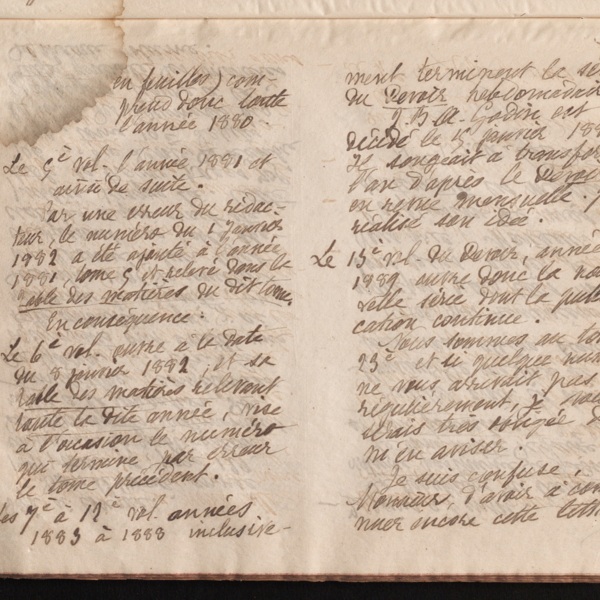 en feuilles) com-
prend donc toute
l'année 1880.
Le 5e vol. l'année 1881 et
ainsi de suite.
Par une erreur du rédac-
teur, le numéro du 1 Janvier
1882 a été ajouté à l'année
1881, tome 5 et relevé dans la
table des matières du dit tome.
En conséquence:
Le 6e vol. ouvre à la date
du 8 janvier 1882, et sa
table des matières relevant
toute la dite année, vise
à l'occasion le numéro
qui termine par erreur
le tome précédent.
Les 7e à 12e vol. années
1883 à 1888 inclusive-
ment terminent la sé
du Devoir hebdomadair
J. Bte A. Godin est
décédé le 15 janvier 188
Il songeait à transfor
l'an d'après le Devoir
en revue mensuelle. J
réalisé son idée.
Le 13e vol. du Devoir, année
1889 ouvre donc la no
velle série dont la publi
cation continue.
Nous sommes au to
23e et si quelque num
ne vous arrivait pas
régulièrement, je vous
serais très obligée d
m'en aviser.
Je suis confuse,
Monsieur, d'avoir à con
nuer encore cette lett